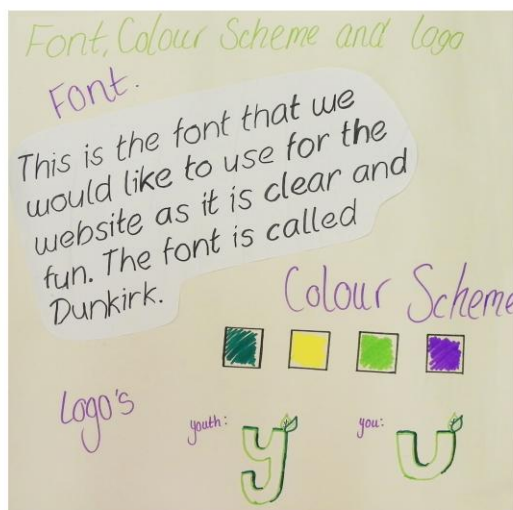 Font, Colour Scheme and logo
Font.
This is the font that we
would like to use for the
website as it is clear and
fun. The font is called
Dunkirk.
Colour Scheme
Logo's
youth:
y
you:
u